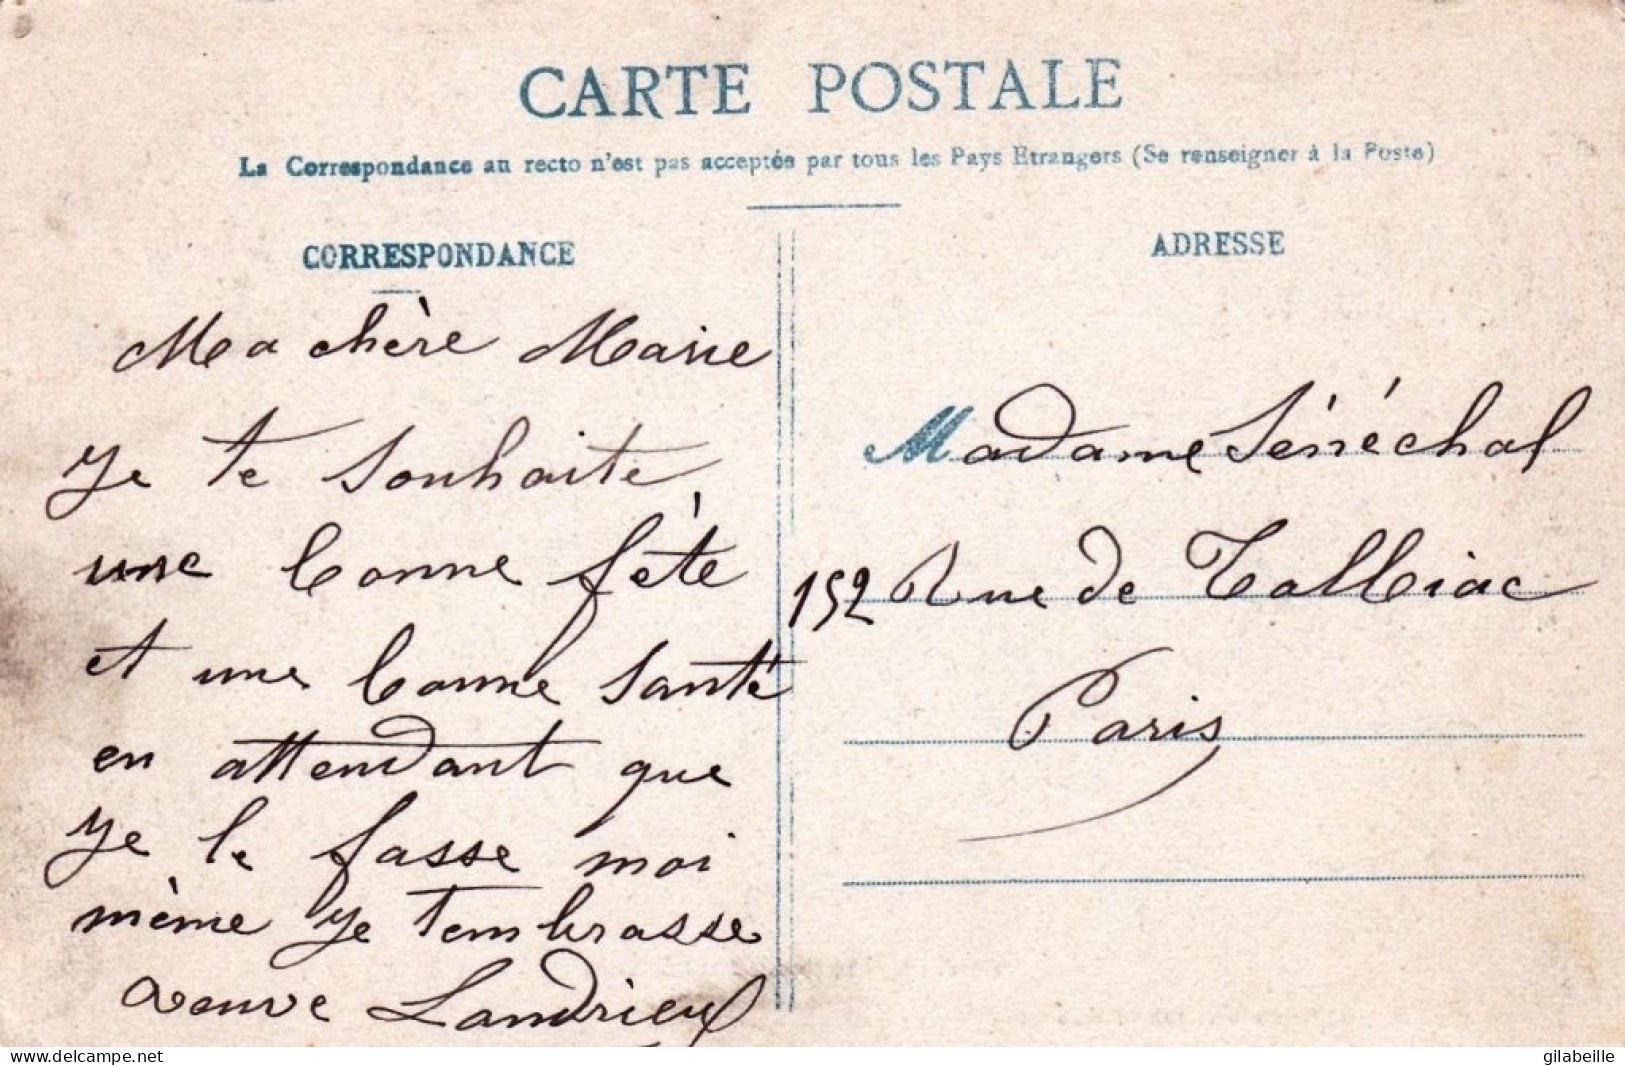 CARTE POSTALE
La Correspondance au recto n'est pas acceptée par tous les Pays Etrangers (Se renseigner à la Poste)
CORRESPONDANCE
Ma chère Marie
Je te souhaite
une bonne fête
et une bonne santé
en attendant que
je le fasse moi
même je t'embrasse
veuve Landrieux
ADRESSE
Madame Sénéchal
152 Rue de Tolbiac
Paris
www.delcampe.net
gilabeille